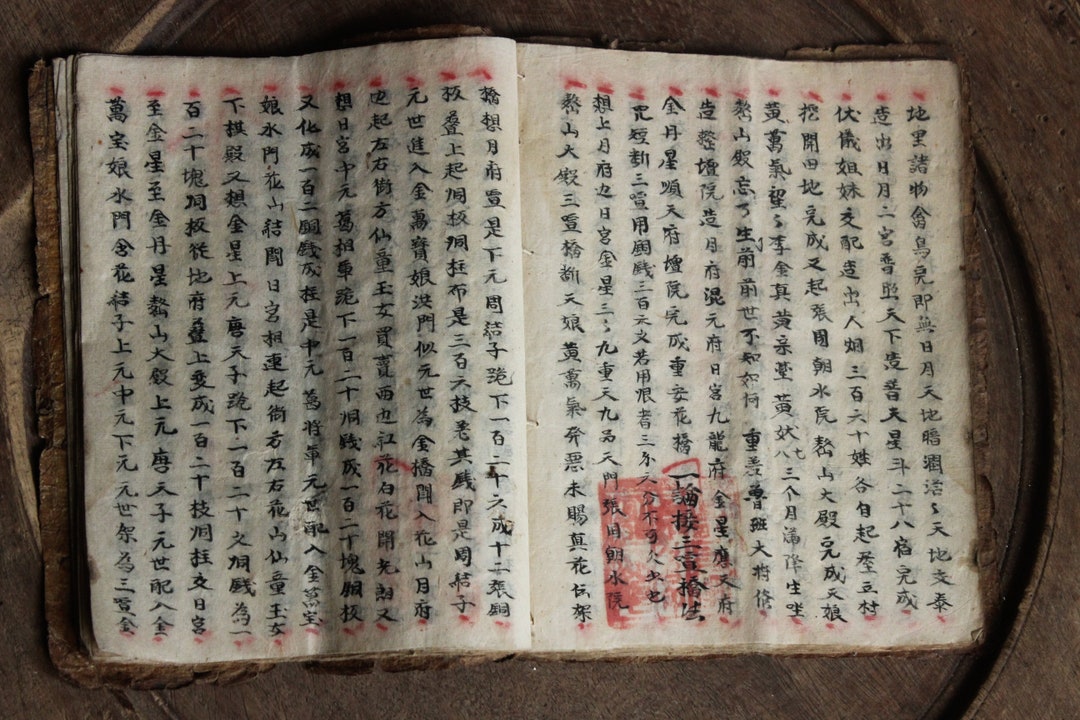 地里諸物禽鳥完即無日月天地瞻潤活〻天地交泰
造出日月二宮普照天下造普天星斗二十八宿完成
伏儀姐妹交配造出人烟三百六十姓各自起屋立村
挖開田地完成又起張國朝水院嶅山大殿完成天娘
黃萬氣望〻李金真黃亲黃妖七八三个月滿降生坐
嶅山殿忘了生前前世不知如何 重差魯班大將修
造整壇院造月府混元府日宮九龍府金星應天府
金丹星順天府壇院完成重安花橋 一論接三宮橋法
咒短断三用銅錢三百六文若用限者三不可火虫也
想上月府边日宮金星三〻九重天九品天門張用朝水院
嶅山大殿三橋断天娘黃萬氣券票未賜真花伝架
橋想月府是下元周結子跪下一百二十六成十二張銅
板叠上起洞板洞柱布是三百六枝其錢即是周結子
元世進入金萬寶娘洪門似元世為金橋開入花山月府
边起左右街方仙童玉女買賣兩边紅花白花開光朗又
想日宮中元葛相軍跪下一百二十洞錢成一百二十塊銅板
又化成一百二銅錢成柱是中元葛將軍元世配入金萬宝
娘水門花山結開日宮相連起街方左右花山仙童玉女
下棋殿又想金星上元唐天子跪下一百二十文洞錢為一
百二十塊洞板從地府叠上变成一百二十枝洞柱交日宮
至金星至金丹星嶅山大殿上元唐天子元世配入金
萬宝娘水門含花結子上元中元下元元世架為三金